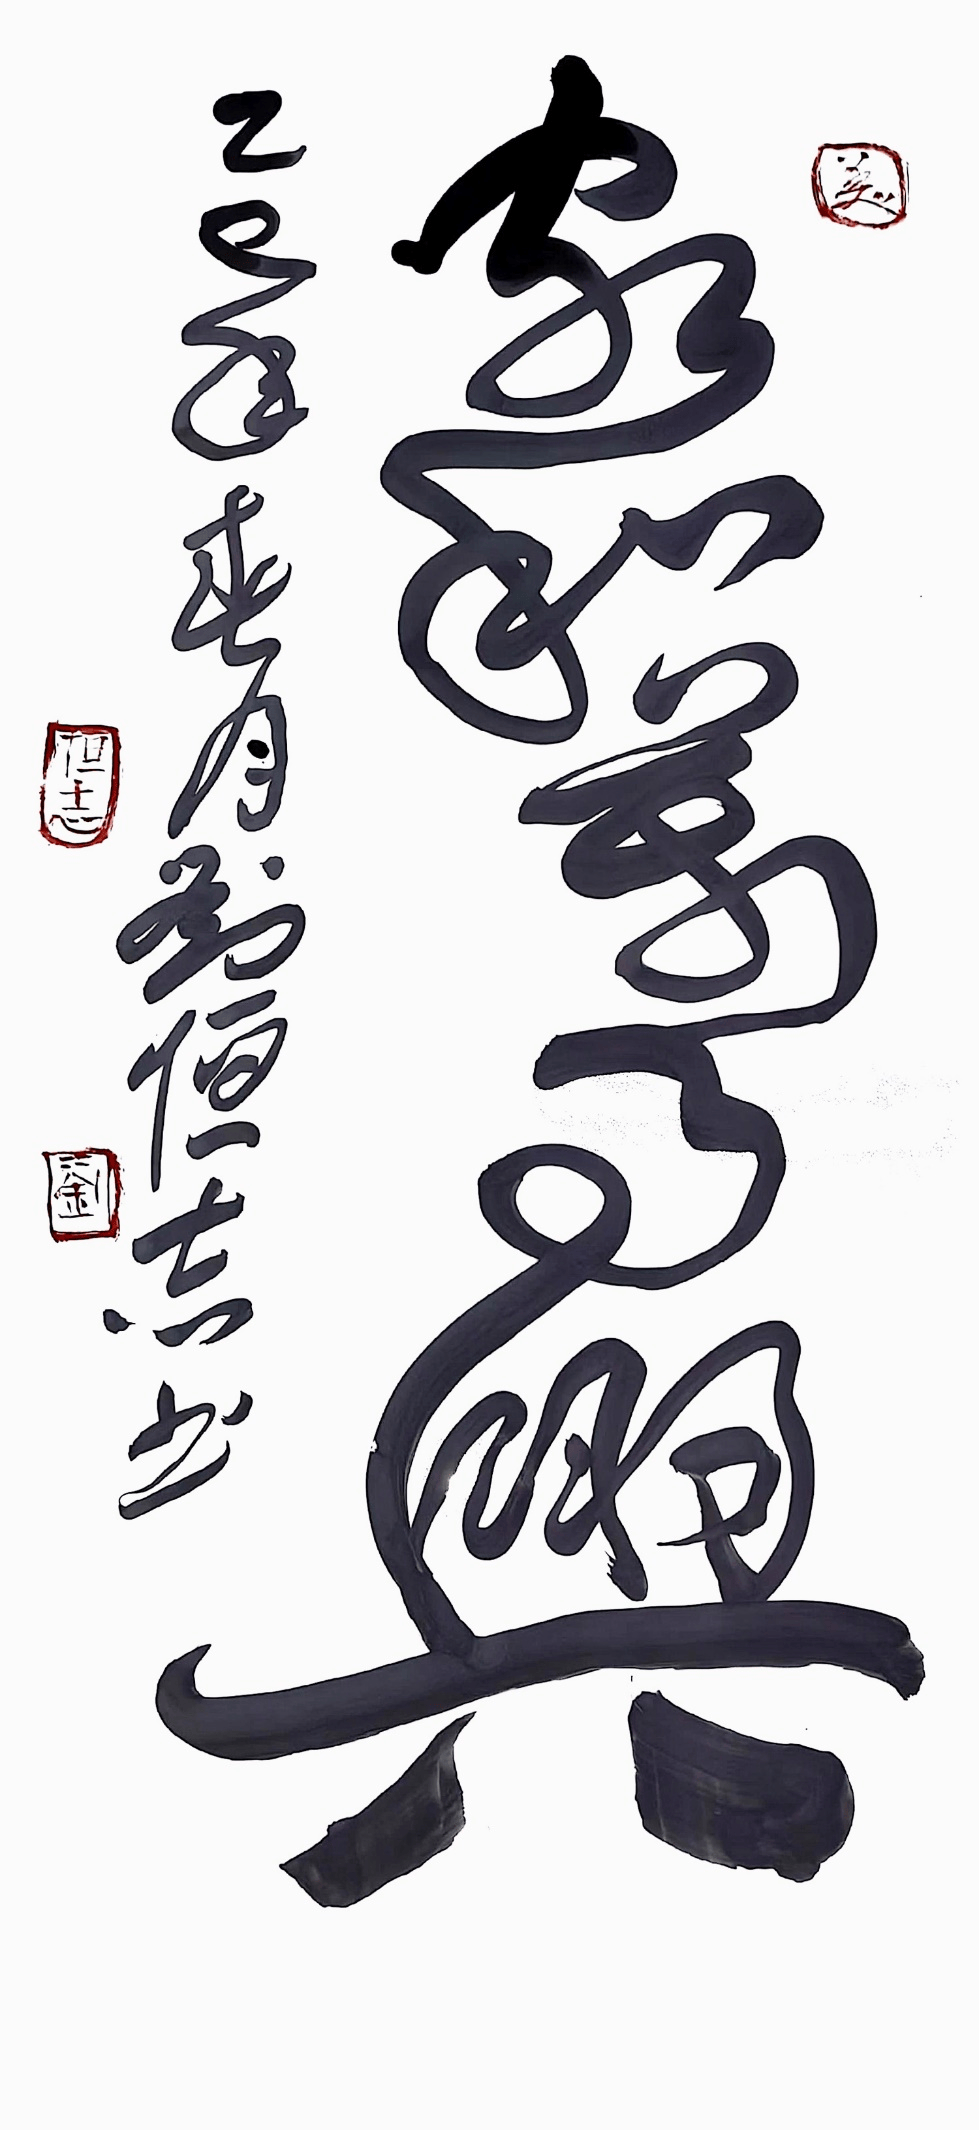 家和萬事興
乙巳年春月劉恒志书
恒志
劉